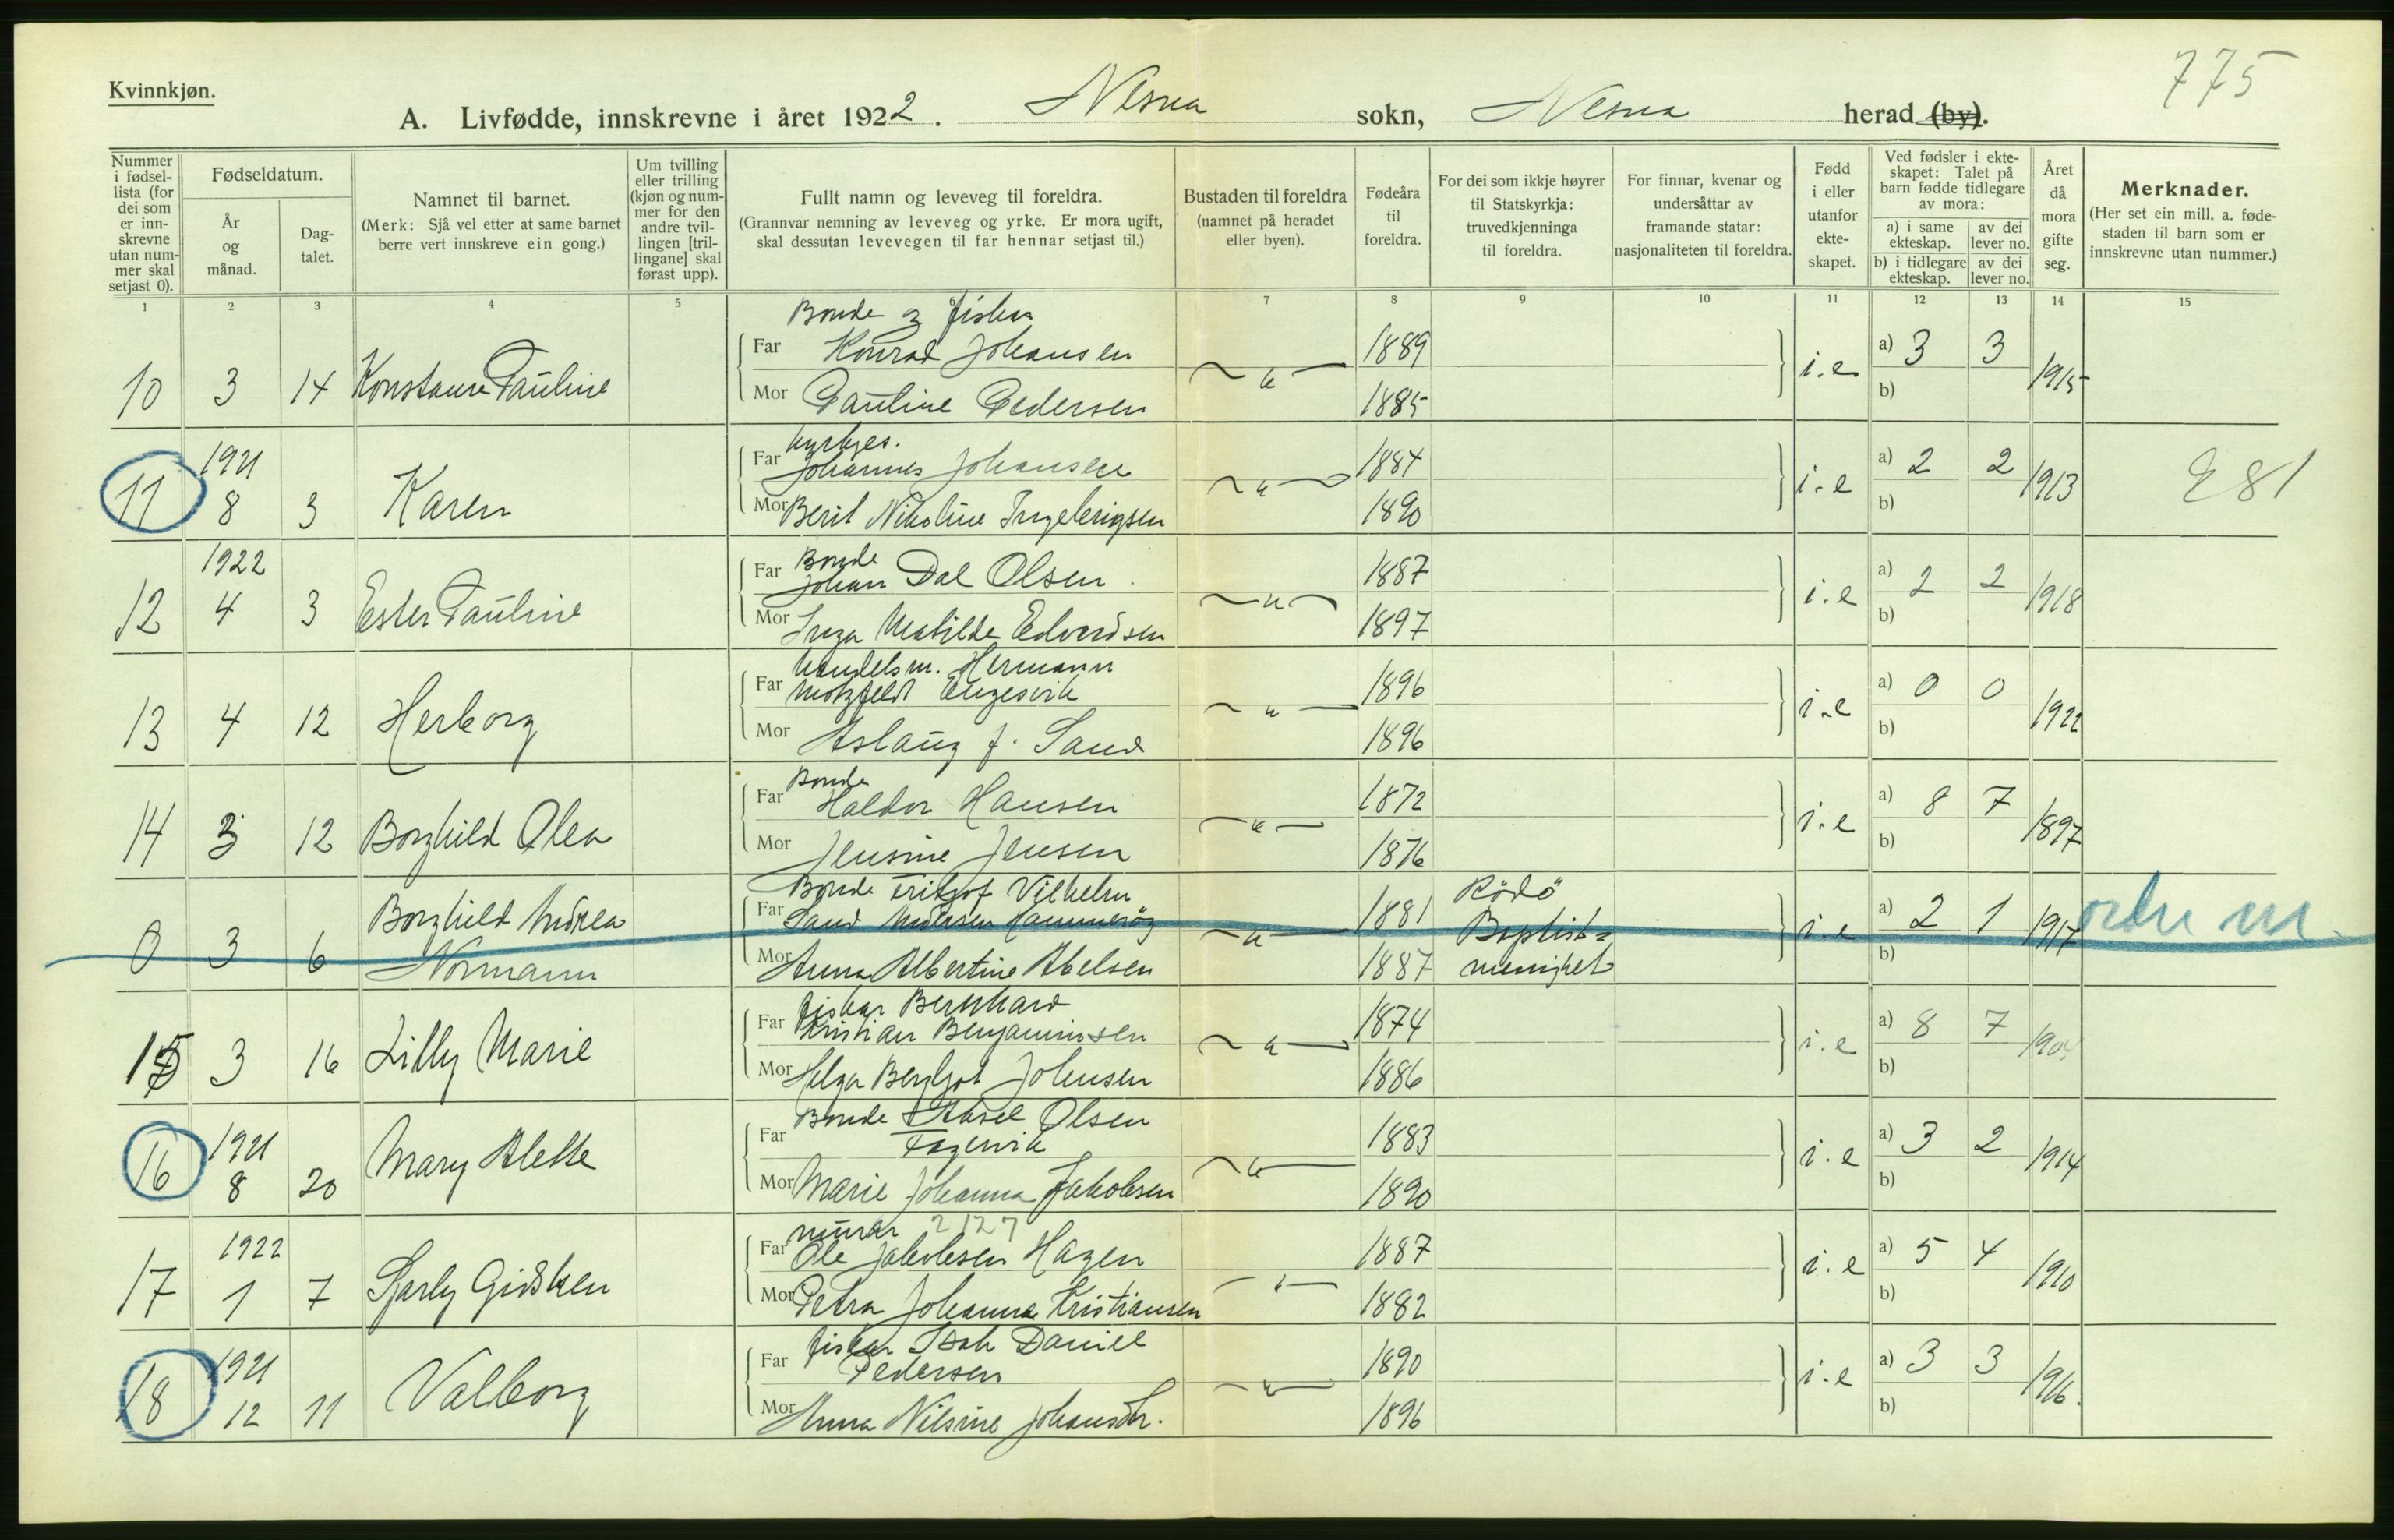 775
Kvinnkjøn.
A. Livfødde, innskrevne i året 1922. Nesna sokn, Nesna herad (by).
Nummer i fødsel-lista (for dei som er inn-skrevne utan num-mer skal setjast 0).
Fødseldatum.
År og månad.
Dag-talet.
Namnet til barnet.
(Merk: Sjå vel etter at same barnet berre vert innskreve ein gong.)
Um tvilling eller trilling (kjøn og num-mer for den andre tvil-lingen [tril-lingane] skal førast upp).
Fullt namn og leveveg til foreldra.
(Grannvar nemning av leveveg og yrke. Er mora ugift, skal dessutan levevegen til far hennar setjast til.)
Bustaden til foreldra (namnet på heradet eller byen).
Fødeåra til foreldra.
For dei som ikkje høyrer til Statskyrkja: truvedkjenninga til foreldra.
For finnar, kvenar og undersåttar av framande statar: nasjonaliteten til foreldra.
Fødd i eller utanfor ekte-skapet.
Ved fødsler i ekte-skapet: Talet på barn fødde tidlegare av mora:
a) i same ekteskap. av dei lever no.
b) i tidlegare ekteskap. av dei lever no.
Året då mora gifte seg.
Merknader.
(Her set ein mill. a. føde-staden til barn som er innskrevne utan nummer.)
1 2 3 4 5 7 8 9 10 11 12 13 14 15
Bonde og fisker
Far Konrad Johansen 1889 a) 3 3
10 3 14 Konstanse Pauline — " — i.e 1915
Mor Pauline Pedersen 1885 b)
kyrkjes.
1921 Far Johannes Johansen 1884 a) 2 2
11 8 3 Karen — " — i.e 1913 E 81
Mor Berit Nikoline Ingebrigsen 1890 b)
1922 Bonde
Far Johan Dal Olsen 1887 a) 2 2
12 4 3 Ester Pauline — " — i.e 1918
Mor Inga Matilde Edvardsen 1897 b)
handelsm. Hermann
Far Motzfeldt Engesvik 1896 a) 0 0
13 4 12 Herborg — " — i.e 1922
Mor Aslaug f. Sand 1896 b)
Bonde
Far Haldor Hansen 1872 a) 8 7
14 3 12 Borghild Olea — " — i.e 1897
Mor Jensine Jensen 1876 b)
Bonde Fritjof Vilhelm Rödö
Far Sand Andersen 1881 Baptist= a) 2 1
0 3 6 Borghild Andrea Normann — " — i.e 1917
Mor Anna Albertine Abelsen 1887 menighet b)
fiskar Bernhard
Far Kristian Benjaminsen 1874 a) 8 7
15 3 16 Lilly Marie — " — i.e
Mor Helga Bergljot Johnsen 1886 b)
Bonde Aksel Olsen
1921 Far Fagervik 1883 a) 3 2
16 8 20 Mary Alette — " — i.e 1914
Mor Marie Johanna Jakobsen 1890 b)
murar 2127
1922 Far Ole Jakobsen Hagen 1887 a) 5 4
17 1 7 Gidsken — " — i.e 1910
Mor Petra Johanna Kristiansen 1882 b)
fiskar Isak Daniel
1921 Far Pedersen 1890 a) 3 3
18 12 11 Valborg — " — i.e 1916.
Mor Anna Nilsine Johansdtr. 1896 b)